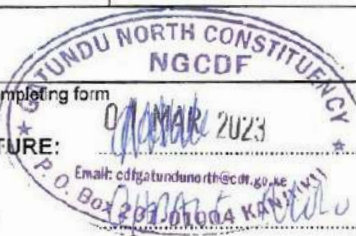 GATUNDU NORTH CONSTITUENCY
NGCDF
mpleting form
MAR 2023
TURE:
Email: cdfgatundunorth@cdf.go.ke
P. O. Box 207-01004 KANJUKU